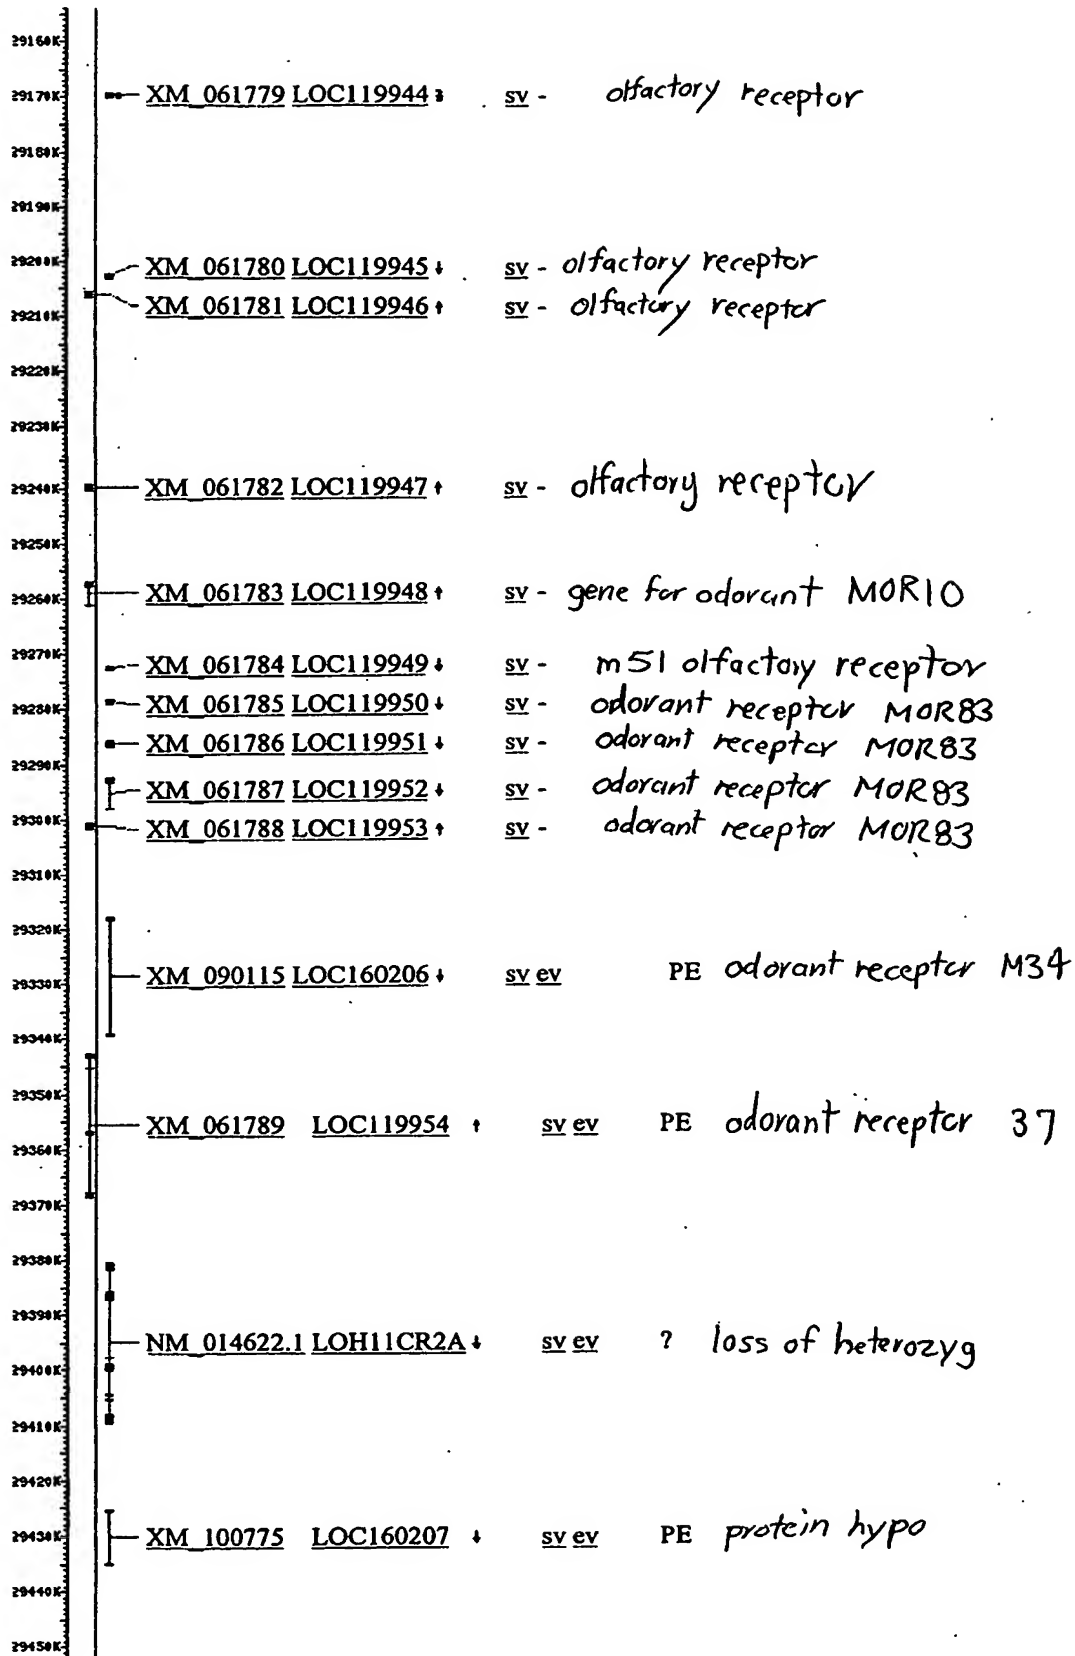 29160K
29170K XM_061779 LOC119944 sv - olfactory receptor
29180K
29190K
29200K XM_061780 LOC119945 ↓ sv - olfactory receptor
XM_061781 LOC119946 ↑ sv - olfactory receptor
29210K
29220K
29230K
29240K XM_061782 LOC119947 ↑ sv - olfactory receptor
29250K
29260K XM_061783 LOC119948 ↑ sv - gene for odorant MOR10
29270K XM_061784 LOC119949 ↓ sv - m51 olfactory receptor
29280K XM_061785 LOC119950 ↓ sv - odorant receptor MOR83
XM_061786 LOC119951 ↓ sv - odorant receptor MOR83
29290K
XM_061787 LOC119952 ↓ sv - odorant receptor MOR83
29300K XM_061788 LOC119953 ↑ sv - odorant receptor MOR83
29310K
29320K
29330K XM_090115 LOC160206 ↓ sv ev PE odorant receptor M34
29340K
29350K
XM_061789 LOC119954 ↑ sv ev PE odorant receptor 37
29360K
29370K
29380K
29390K
NM_014622.1 LOH11CR2A ↓ sv ev ? loss of heterozyg
29400K
29410K
29420K
29430K XM_100775 LOC160207 ↓ sv ev PE protein hypo
29440K
29450K